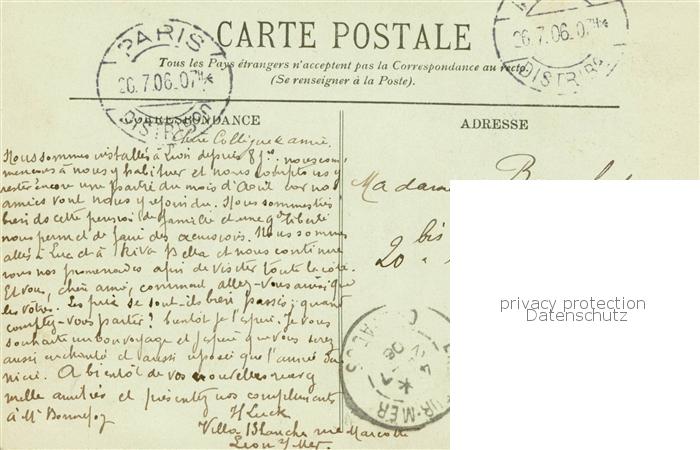 CARTE POSTALE
Tous les Pays étrangers n'acceptent pas la Correspondance au recto.
(Se renseigner à la Poste).
PARIS
26.7.06.07H
DISTRIBON
26.7.06.07
DISTRIBON
CORRESPONDANCE
ADRESSE
Chère Collègue & amie,
Nous sommes installés à Lion depuis 8 jrs. nous com
mençons à nous y habituer et nous comptons y
rester encore une partie du mois d'Août car nos
amies vont nous y rejoindre. Nous sommes très
bien de cette pension de famille et une gde liberté
nous permet de faire des excursions. Nous sommes
allés à Luc et à Riva Bella et nous continue
rons nos promenades afin de visiter toute la côte.
Et vous, chère amie, comment allez-vous ainsi que
les vôtres. Les prix se sont-ils bien passés; quand
comptez-vous partir? bientôt je l'espère. Je vous
souhaite un bon voyage et j'espère que vous serez
aussi enchanté et aussi reposée que l'année der
nière. A bientôt de vos nouvelles recevez
mille amitiés et présentez nos compliments
à Mr Bonnefoy
H Luck
Villa Blanche rue Marcotte
Lion s/ Mer.
Madame
20 bis
SUR-MER
privacy protection
Datenschutz